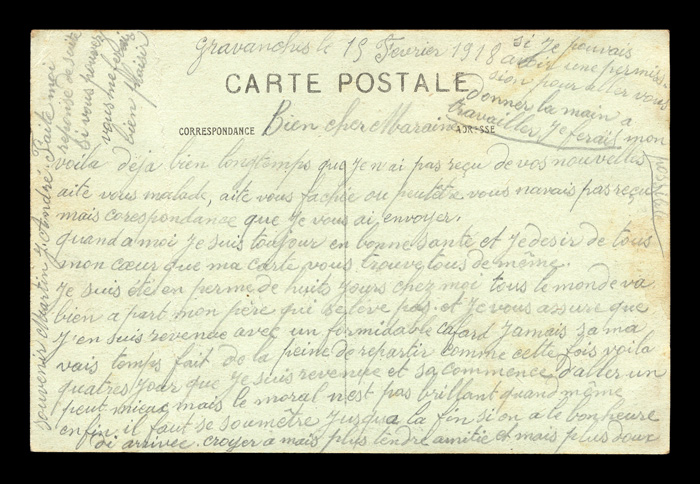 Gravanches le 15 Fevrier 1918
CARTE POSTALE
CORRESPONDANCE
ADRESSE
Bien cher Maraine
voila déja bien longtemps que je n'ai pas reçu de vos nouvelles
aite vous malade, aite vous fachée ou peutetre vous navais pas reçu
mais corespondance que je vous ai envoyer.
quand a moi je suis toujour en bonne santé et je desir de tous
mon cœur que ma carte vous trouve tous de même.
je suis été en perme de huits jours chez moi tous le monde va
bien a part mon père qui se lève pas. et je vous assure que
j'en suis revenue avec un firmidable cafard jamais sa ma
vais temps fait de la peine de repartir comme cette fois voila
quatres jour que je suis revenue et sa commence d'aller un
peut mieux mais le moral n'est pas brillant quand même
enfin il faut se soumêtre jusqu'a la fin si on a le bonheure
di arrivée. croyer a mais plus tendre amitie et mais plus doux
souvenir Martin J André. Faite moi
reponse de suite
si vous pouvez
vous me ferai
bien plaisir
si je pouvais
avoir une permis-
sion pour aller vous
donner la main a
travailler je ferais mon